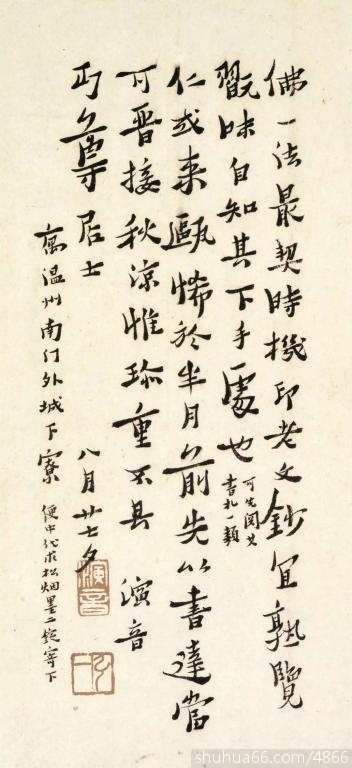 佛一法最契時機印老文鈔宜熟覽
翫味自知其下手處也 可先閱其
書札一類
仁或来甌悕於半月前先以書達當
可晋接秋涼惟珍重不具 演音
丏尊居士 八月廿七夕
寓温州南门外城下寮 便中代求松烟墨二錠寄下
演音
弘一
shuhua66.com/4866